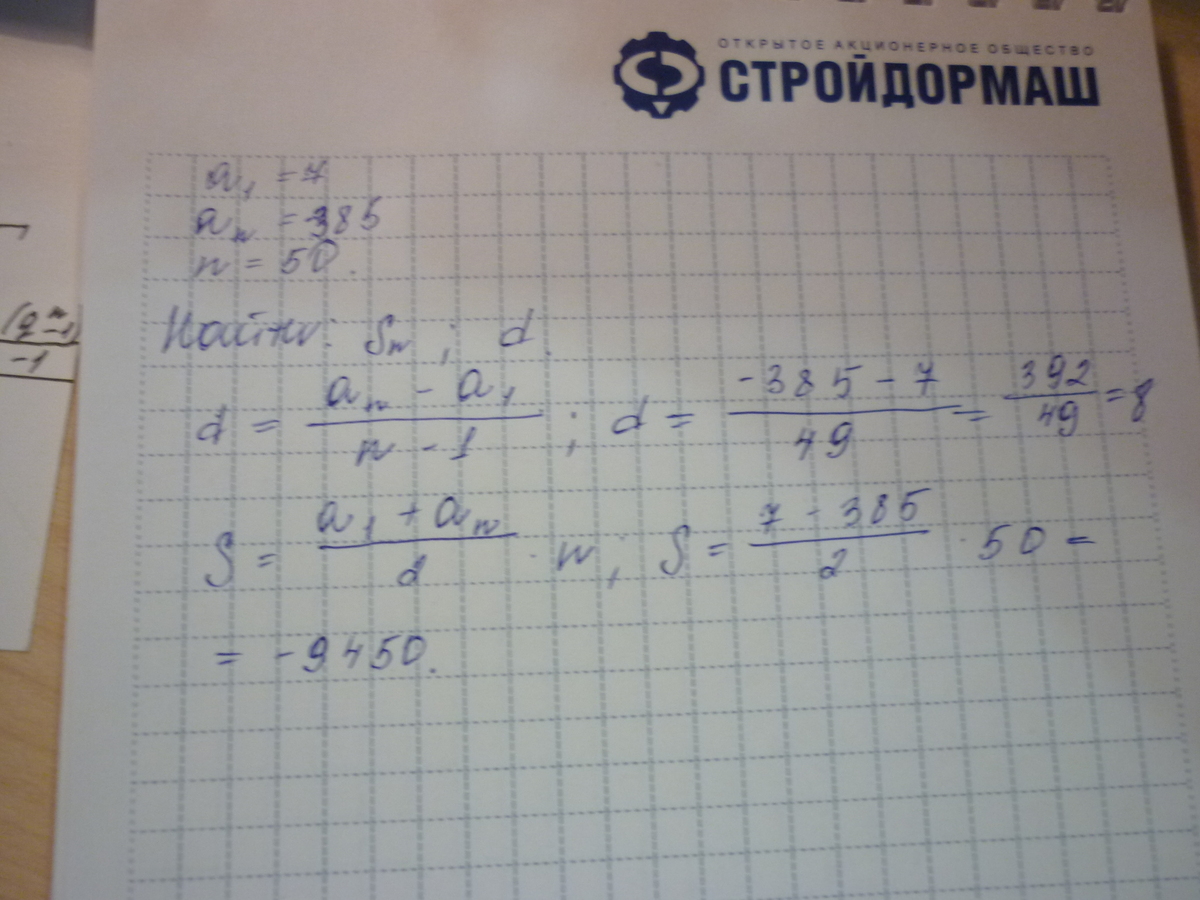 ОТКРЫТОЕ АКЦИОНЕРНОЕ ОБЩЕСТВО
СТРОЙДОРМАШ
a₁ = 7
aₙ = 385
n = 50.
Найти: Sₙ ; d.
d = (aₙ - a₁)/(n - 1) ; d = (-385 - 7)/49 = 392/49 = 8
S = (a₁ + aₙ)/2 · n ; S = (7 - 385)/2 · 50 =
= -9450.
(qⁿ-1)
-1